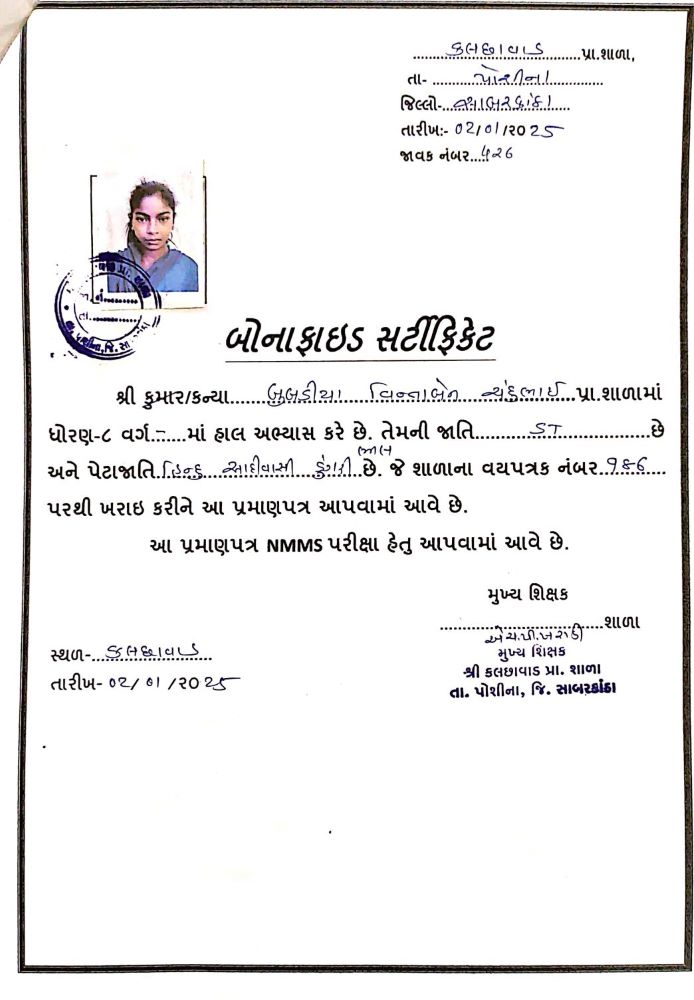 કલછાવાડ પ્રા.શાળા,
તા- પોશીના
જિલ્લો- સાબરકાંઠા
તારીખ:- 02/01/૨૦25
જાવક નંબર...૫26
બોનાફાઇડ સર્ટીફિકેટ
શ્રી કુમાર/કન્યા બુબડીયા વિન્નાબેન ચંદુભાઈ પ્રા.શાળામાં
ધોરણ-૮ વર્ગ.-....માં હાલ અભ્યાસ કરે છે. તેમની જાતિ ST છે
ભીલ
અને પેટાજાતિ હિન્દુ આદીવાસી ડુંગરી છે. જે શાળાના વયપત્રક નંબર ૧૬૬
પરથી ખરાઇ કરીને આ પ્રમાણપત્ર આપવામાં આવે છે.
આ પ્રમાણપત્ર NMMS પરીક્ષા હેતુ આપવામાં આવે છે.
મુખ્ય શિક્ષક
શાળા
એચ.પી.ખરાડી
મુખ્ય શિક્ષક
શ્રી કલછાવાડ પ્રા. શાળા
તા. પોશીના, જિ. સાબરકાંઠા
સ્થળ- કલછાવાડ
તારીખ- 02/01/૨૦25